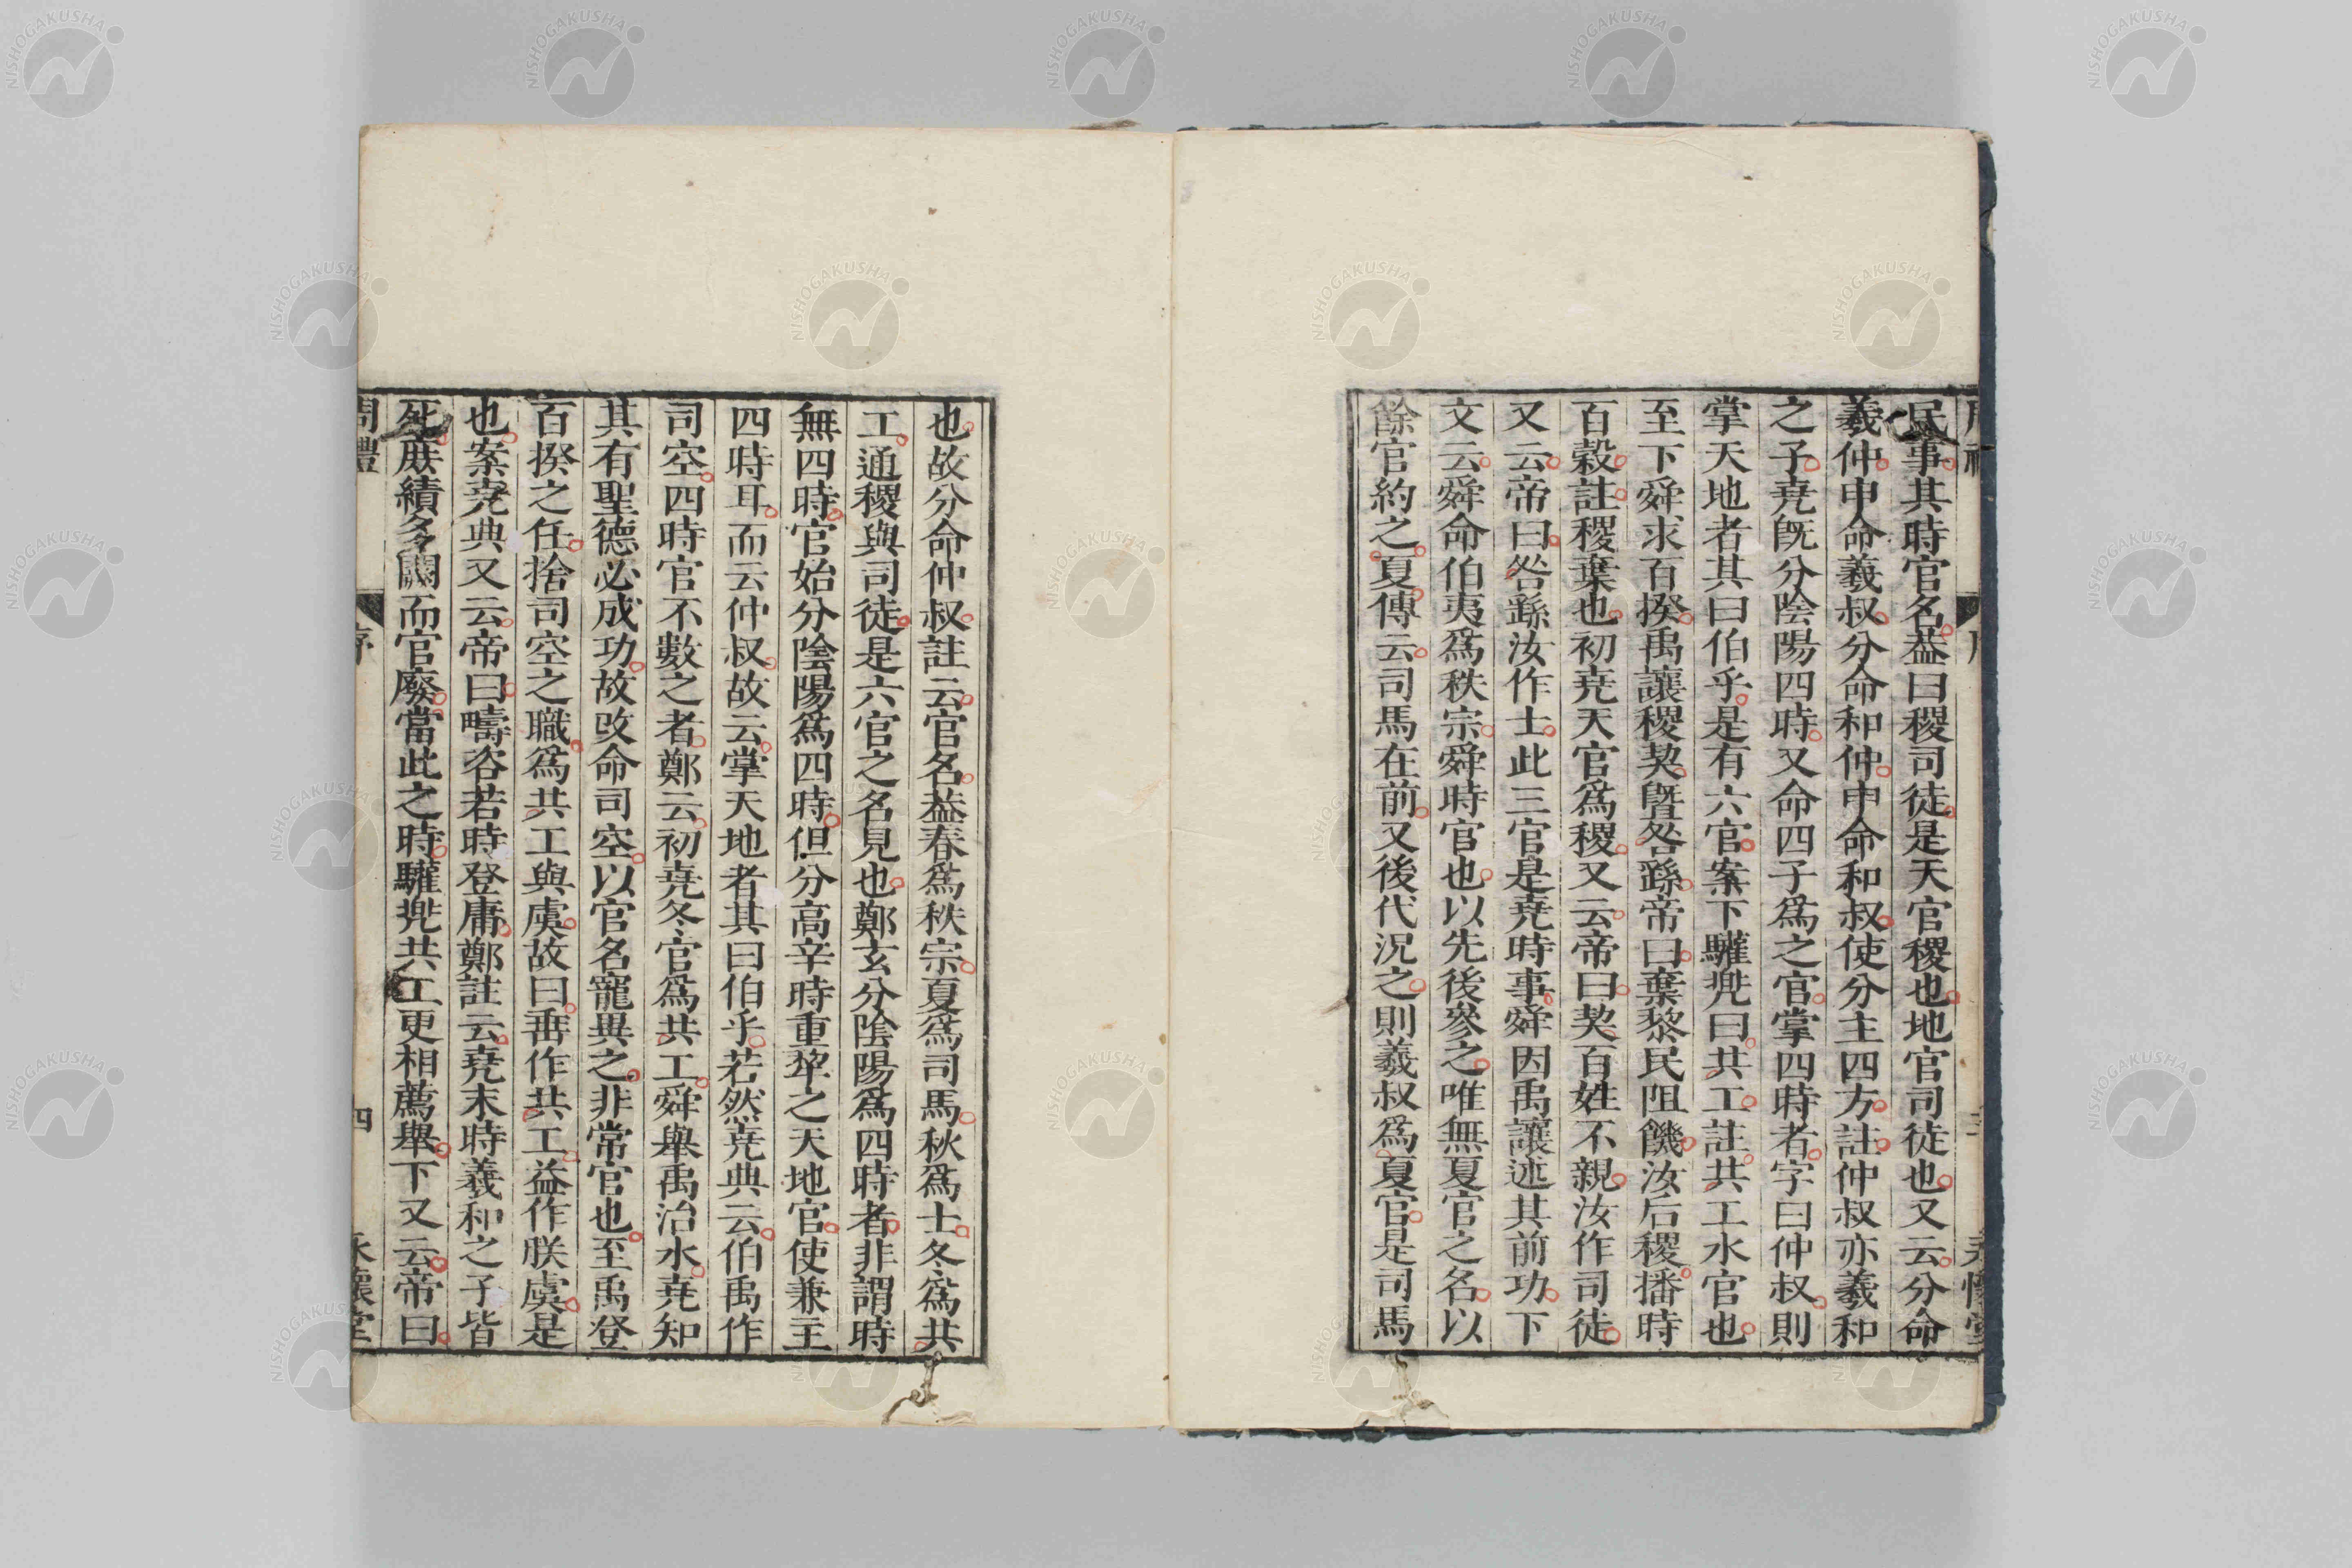 民事其時官名葢曰稷司徒是天官稷也地官司徒也又云分命
羲仲申命羲叔分命和仲申命和叔使分主四方註仲叔亦羲和
之子堯旣分隂陽四時又命四子爲之官掌四時者字曰仲叔則
掌天地者其曰伯乎是有六官案下驩兠曰共工註共工水官也
至下舜求百揆禹讓稷契曁咎繇帝曰棄黎民阻饑汝后稷播時
百穀註稷棄也初堯天官爲稷又云帝曰契百姓不親汝作司徒
又云帝曰咎繇汝作士此三官是堯時事舜因禹讓述其前功下
文云舜命伯夷爲秩宗舜時官也以先後參之唯無夏官之名以
餘官約之夏傳云司馬在前又後代況之則羲叔爲夏官是司馬
也故分命仲叔註云官名葢春爲秩宗夏爲司馬秋爲士冬爲共
工通稷與司徒是六官之名見也鄭玄分隂陽爲四時者非謂時
無四時官始分隂陽爲四時但分高辛時重犂之天地官使兼主
四時耳而云仲叔故云掌天地者其曰伯乎若然堯典云伯禹作
司空四時官不數之者鄭云初堯冬官爲共工舜舉禹治水堯知
其有聖德必成功故改命司空以官名寵異之非常官也至禹登
百揆之任捨司空之職爲共工與虞故曰垂作共工益作朕虞是
也案堯典又云帝曰疇咨若時登庸鄭註云堯末時羲和之子皆
死庶績多闕而官廢當此之時驩兠共工更相薦舉下又云帝曰
周禮
序
四
永懷堂
NISHOGAKUSHA